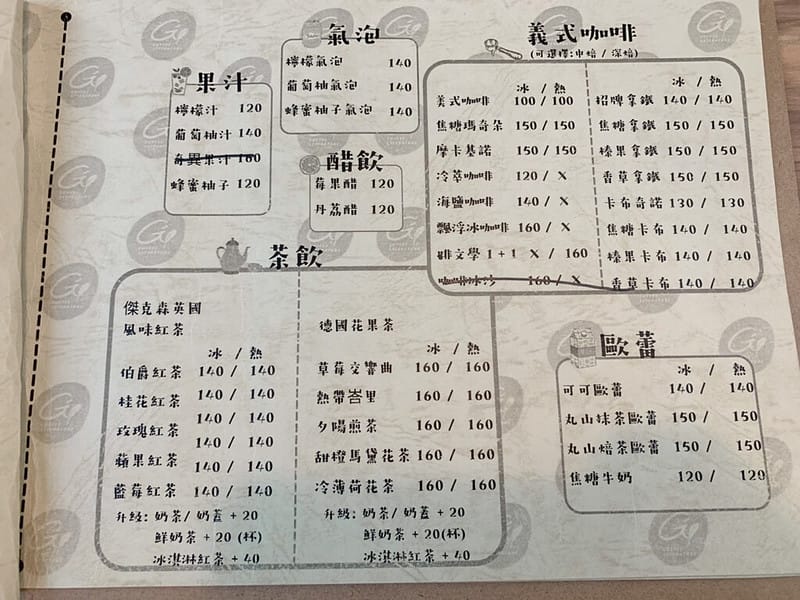 果汁
檸檬汁 120
葡萄柚汁 140
奇異果汁 160
蜂蜜柚子 120
氣泡
檸檬氣泡 140
葡萄柚氣泡 140
蜂蜜柚子氣泡 140
醋飲
莓果醋 120
丹荔醋 120
義式咖啡
(可選擇:中焙 / 深焙)
冰 / 熱
美式咖啡 100 / 100
焦糖瑪奇朵 150 / 150
摩卡基諾 150 / 150
冷萃咖啡 120 / X
海鹽咖啡 140 / X
飄浮冰咖啡 160 / X
啡文學 1+1 X / 160
咖啡冰沙 160 / X
冰 / 熱
招牌拿鐵 140 / 140
焦糖拿鐵 150 / 150
榛果拿鐵 150 / 150
香草拿鐵 150 / 150
卡布奇諾 130 / 130
焦糖卡布 140 / 140
榛果卡布 140 / 140
香草卡布 140 / 140
茶飲
傑克森英國
風味紅茶
冰 / 熱
伯爵紅茶 140 / 140
桂花紅茶 140 / 140
140 / 140
玫瑰紅茶
140 / 140
蘋果紅茶 140 / 140
藍莓紅茶 140 / 140
升級: 奶茶/ 奶蓋 + 20
鮮奶茶 + 20 (杯)
冰淇淋紅茶 + 40
德國花果茶
冰 / 熱
草莓交響曲 160 / 160
熱帶峇里 160 / 160
夕陽煎茶 160 / 160
甜橙馬黛花茶 160 / 160
冷薄荷花茶 160 / 160
升級: 奶茶/ 奶蓋 + 20
鮮奶茶 + 20(杯)
冰淇淋紅茶 + 40
歐蕾
冰 / 熱
可可歐蕾 140 / 140
丸山抹茶歐蕾 150 / 150
丸山焙茶歐蕾 150 / 150
焦糖牛奶 120 / 120